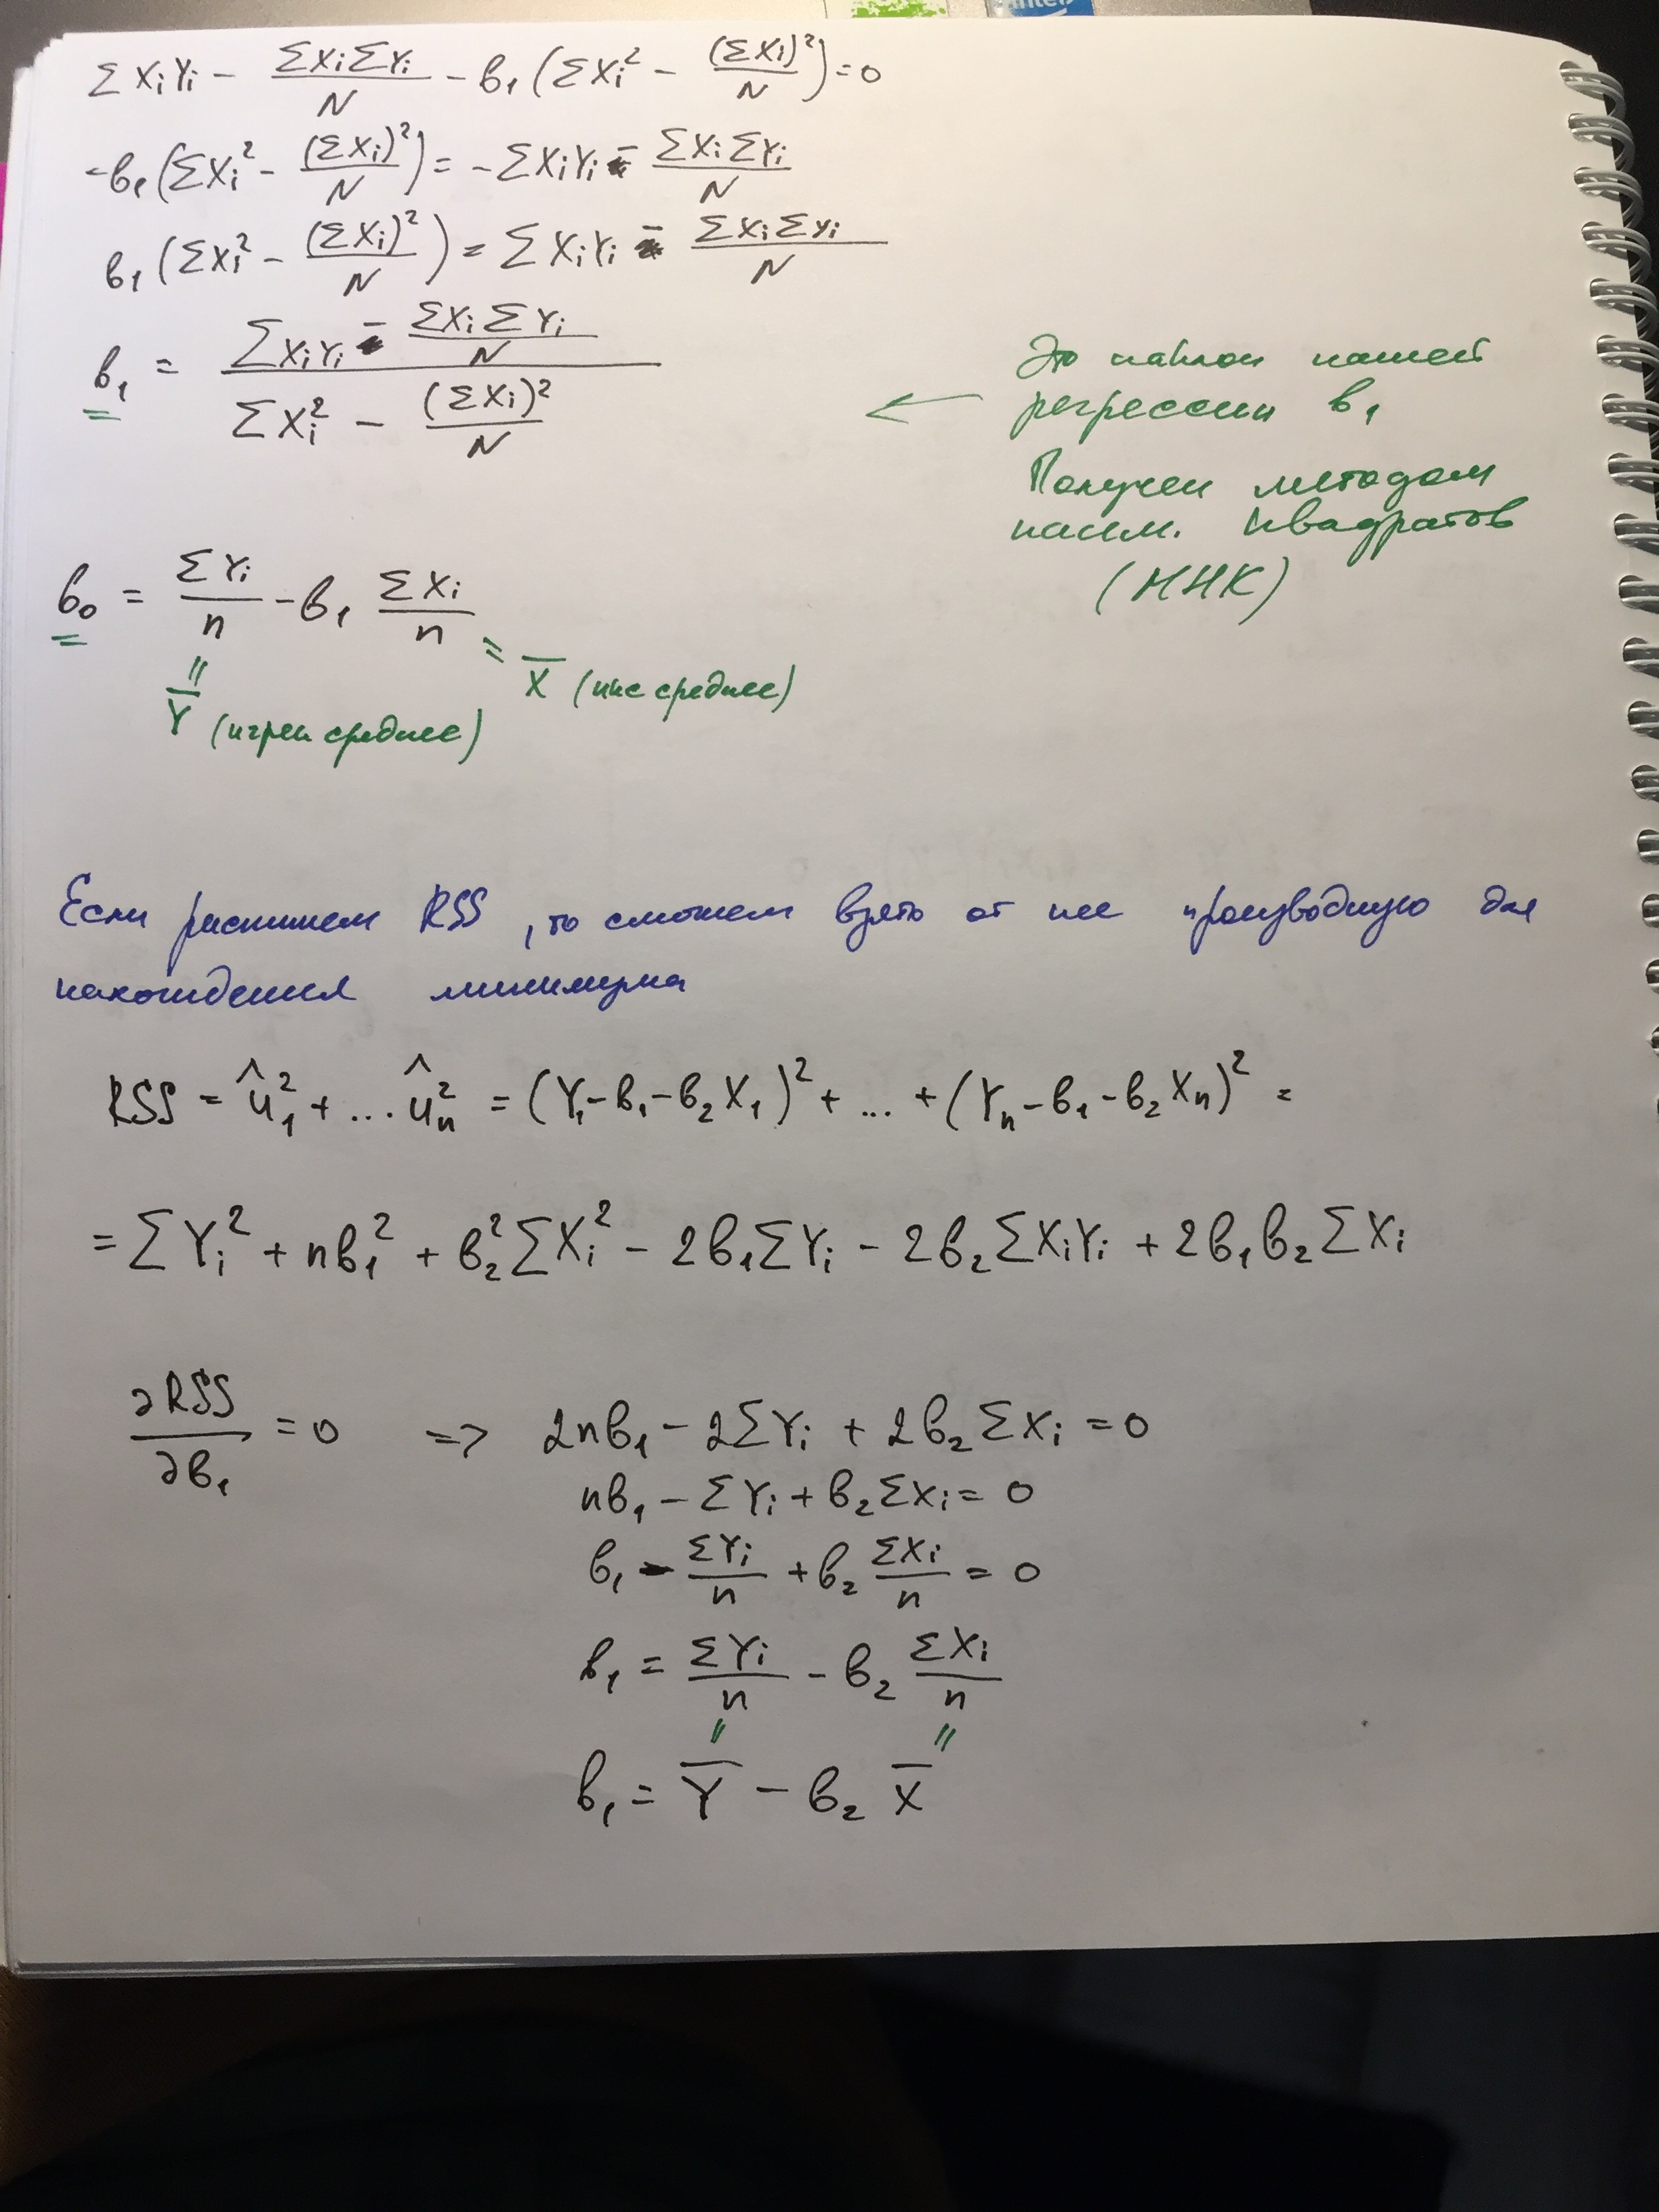 ΣXiYi - ΣXiΣYi/N - в₁(ΣXi² - (ΣXi)²/N) = 0
-в₁(ΣXi² - (ΣXi)²/N) = -ΣXiYi - ΣXiΣYi/N
в₁(ΣXi² - (ΣXi)²/N) = ΣXiYi - ΣXiΣYi/N
в₁ = (ΣXiYi - ΣXiΣYi/N) / (ΣXi² - (ΣXi)²/N)
← Это наклон нашей
регрессии в₁
Получен методом
наим. квадратов
(МНК)
в₀ = ΣYi/n - в₁ ΣXi/n
= X̄ (икс среднее)
= Ȳ (игрек среднее)
Если распишем RSS, то сможем взять от нее производную для
нахождения минимума
RSS = û₁² + ... ûn² = (Y₁-в₁-в₂X₁)² + ... + (Yn-в₁-в₂Xn)² =
= ΣYi² + nв₁² + в₂²ΣXi² - 2в₁ΣYi - 2в₂ΣXiYi + 2в₁в₂ΣXi
∂RSS/∂в₁ = 0 => 2nв₁ - 2ΣYi + 2в₂ΣXi = 0
nв₁ - ΣYi + в₂ΣXi = 0
в₁ - ΣYi/n + в₂ ΣXi/n = 0
в₁ = ΣYi/n - в₂ ΣXi/n
" "
в₁ = Ȳ - в₂ X̄